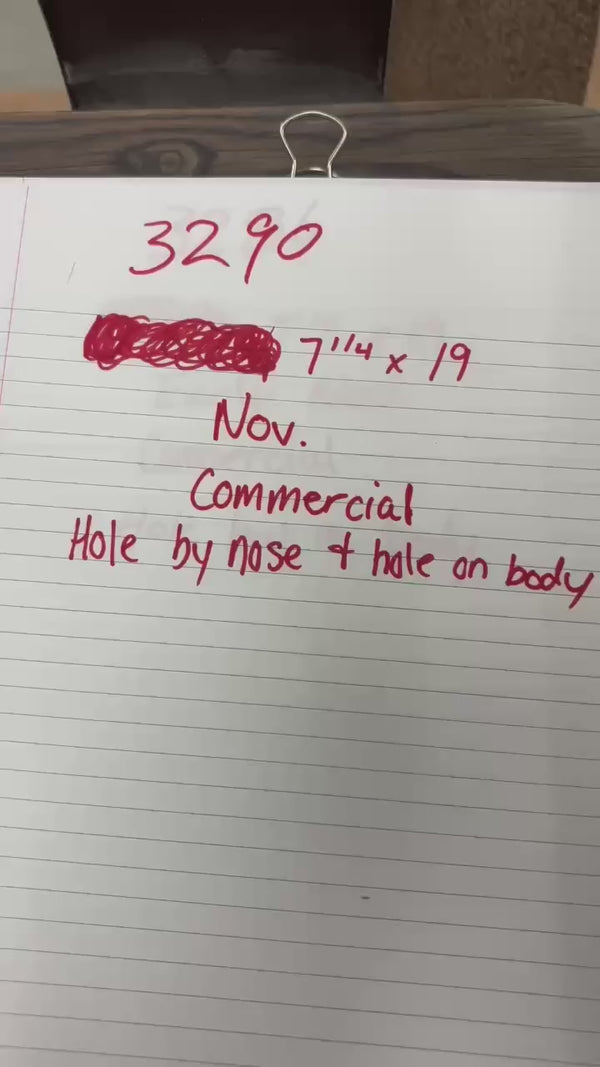 3290
7 1/4 x 19
Nov.
Commercial
Hole by nose + hole on body